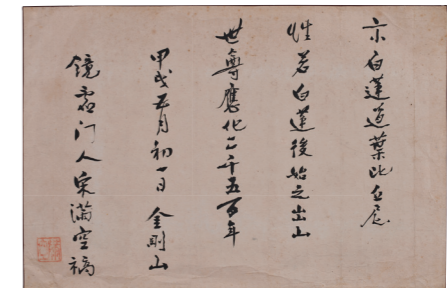 示白蓮道葉比丘尼
性若白蓮後始之出山
世尊應化二千五百年
甲戌五月初一日 金剛山
鏡虛门人宋滿空稿